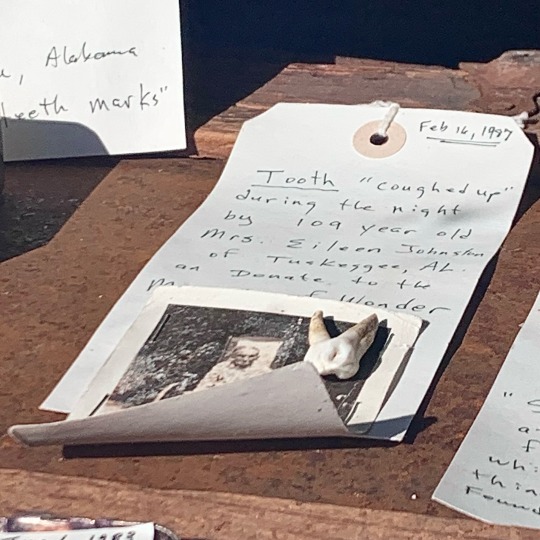 Alabama
teeth marks"
Feb 16, 1987
Tooth "coughed up"
during the night
by 109 year old
Mrs. Eileen Johnston
of Tuskeggee, AL.
an Donate to the
Wonder
"S
a
f
whi
thin
Foun
1988